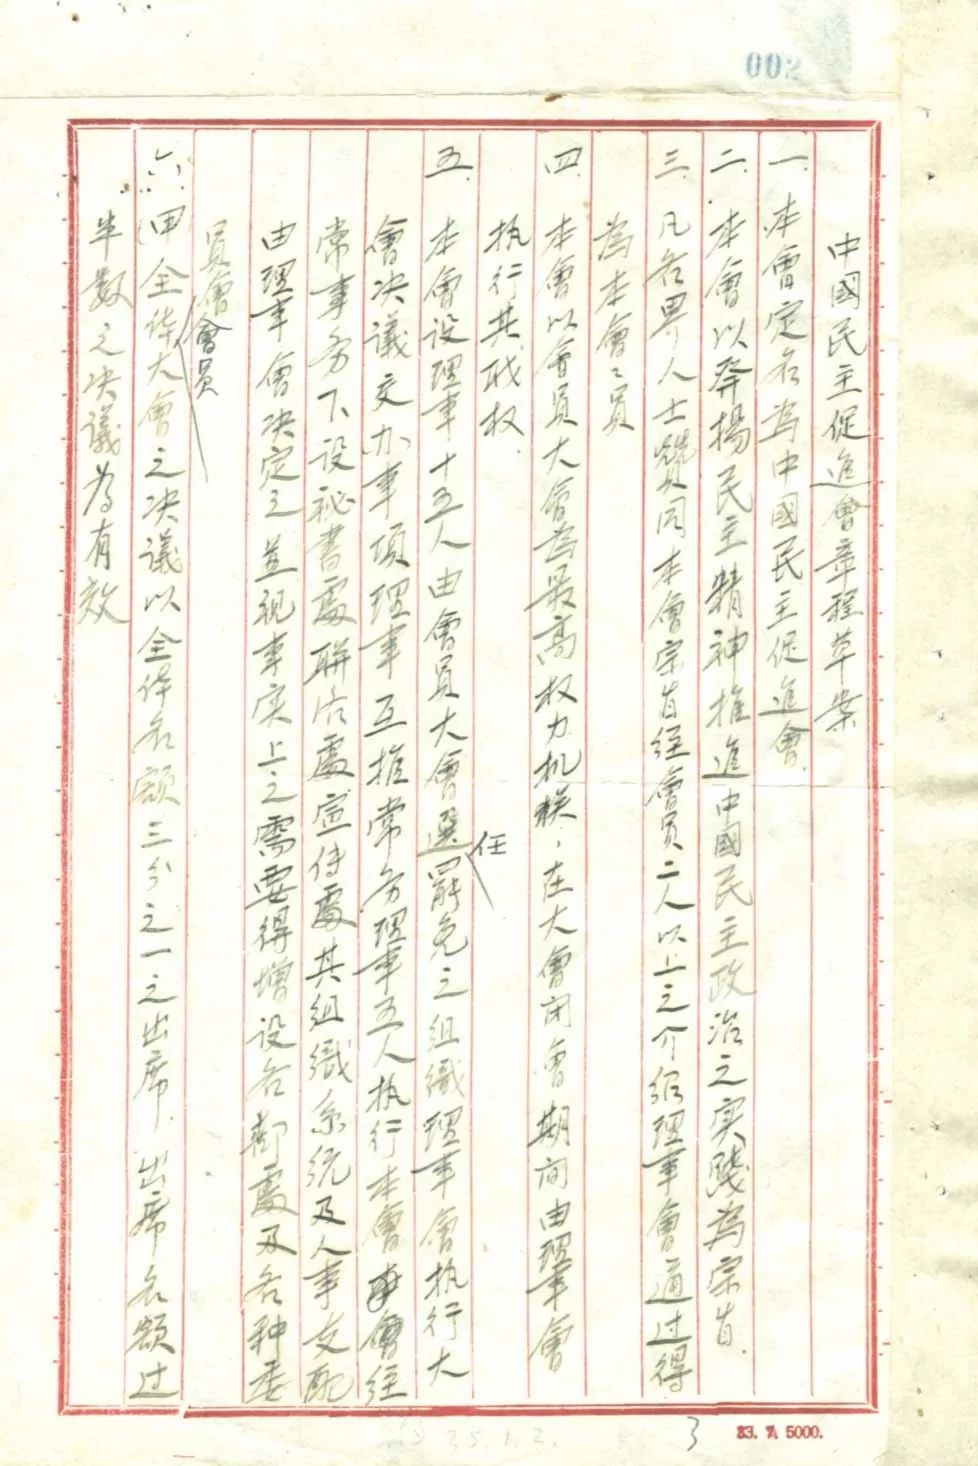 002
中國民主促進會章程草案
一、本會定名為中國民主促進會
二、本會以發揚民主精神推進中國民主政治之实踐為宗旨.
三、凡各界人士贊同本會宗旨經會員二人以上之介紹理事會通过得
為本會々員
四、本會以會員大會為最高权力机関，在大會闭會期间由理事會
执行其职权.
五、本會设理事十五人由會員大會選任罷免之组織理事會执行大
會决議交办事項理事互推常务理事五人执行本會會经
常事务下设祕書處聯络處宣传處其组織系统及人事支配
由理事會决定之並視事实上之需要得增设各部處及各种委
員會
六、(甲)全体大會之决議以全体會員名额三分之一之出席.出席名额过
半數之决議為有效
35.1.2.
3
33. 7. 5000.